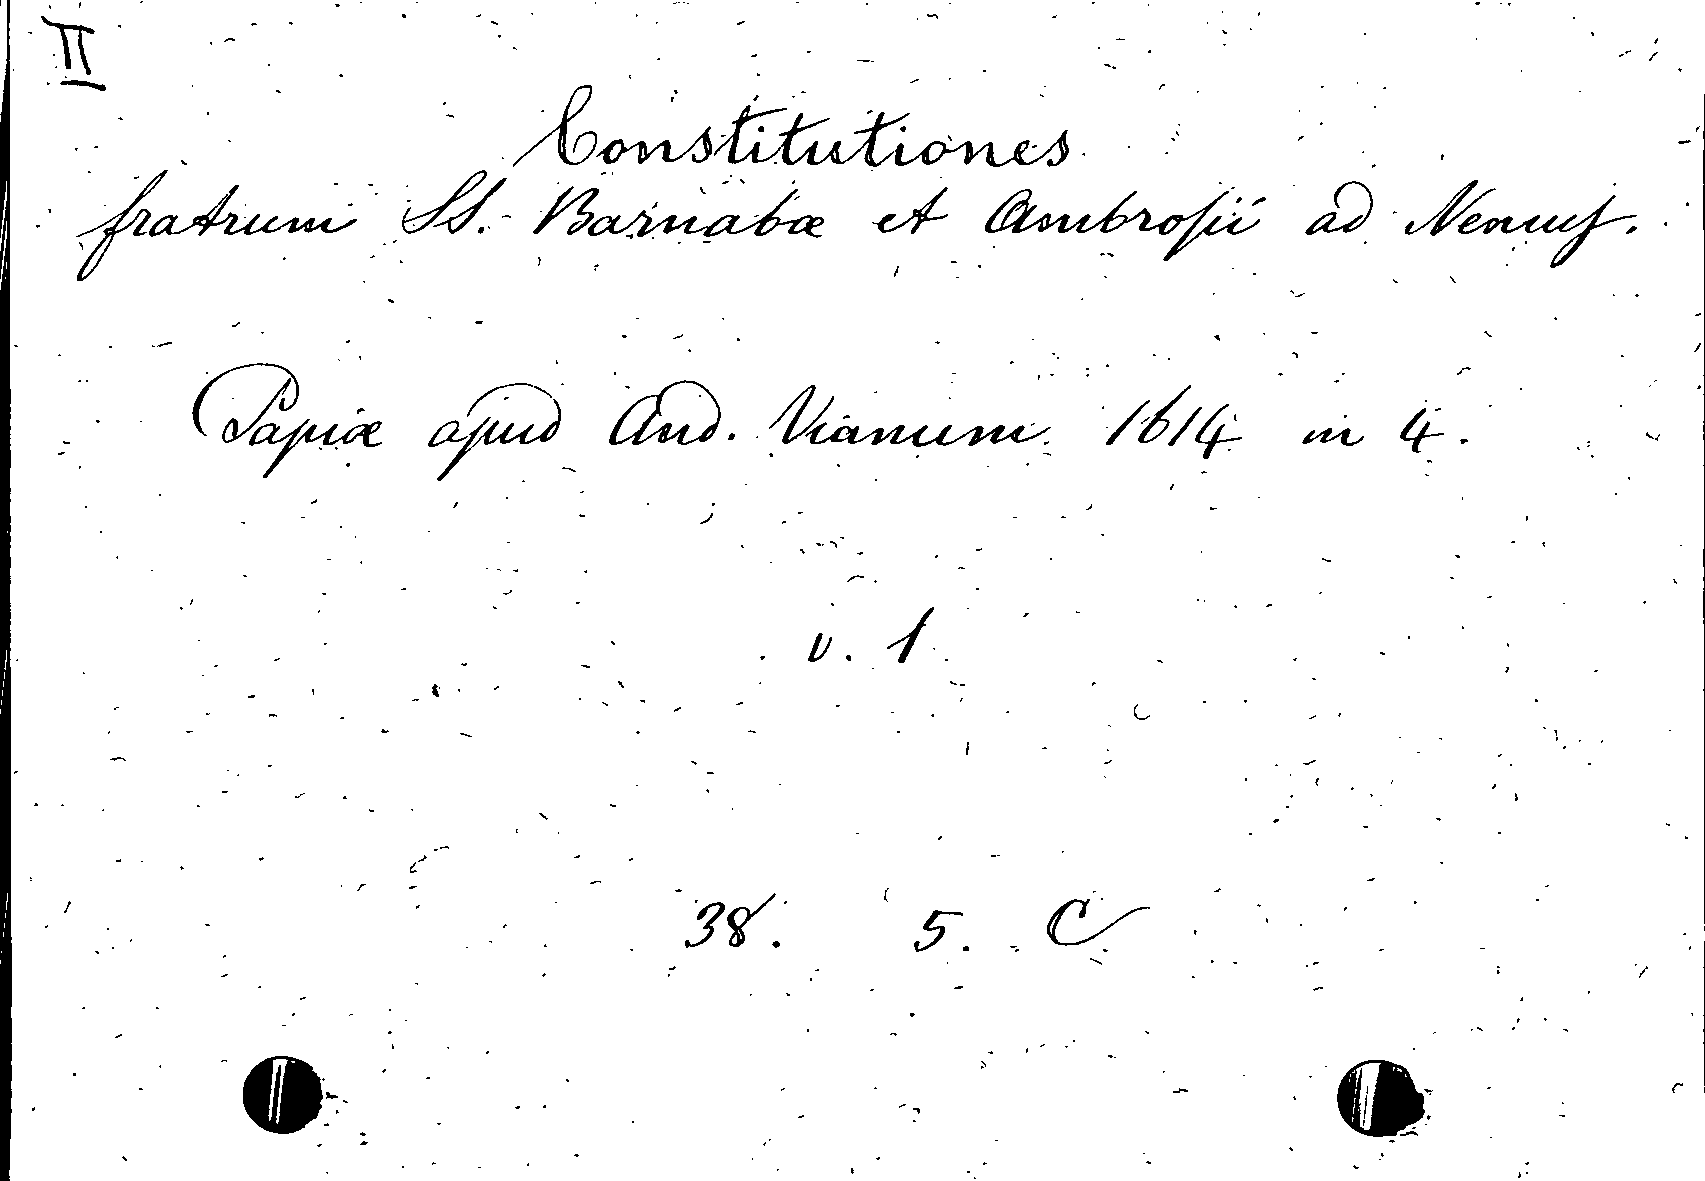 II
Constitutiones
fratrum SS. Barnabæ et Ambrosii ad Nemus.
Papiæ apud And. Vianum. 1614 in 4.
v. 1
38. 5. C